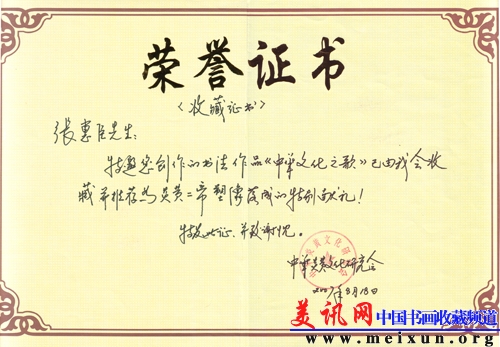 荣誉证书
〈收藏证书〉
張惠臣先生：
特邀您创作的书法作品《中華文化之歌》已由我会收
藏并推荐为炎黄二帝塑像落成的特别献礼！
特发此证，并致谢忱。
中華炎黄文化研究会
2007年8月18日
美讯网 中国书画收藏频道
www.meixun.org